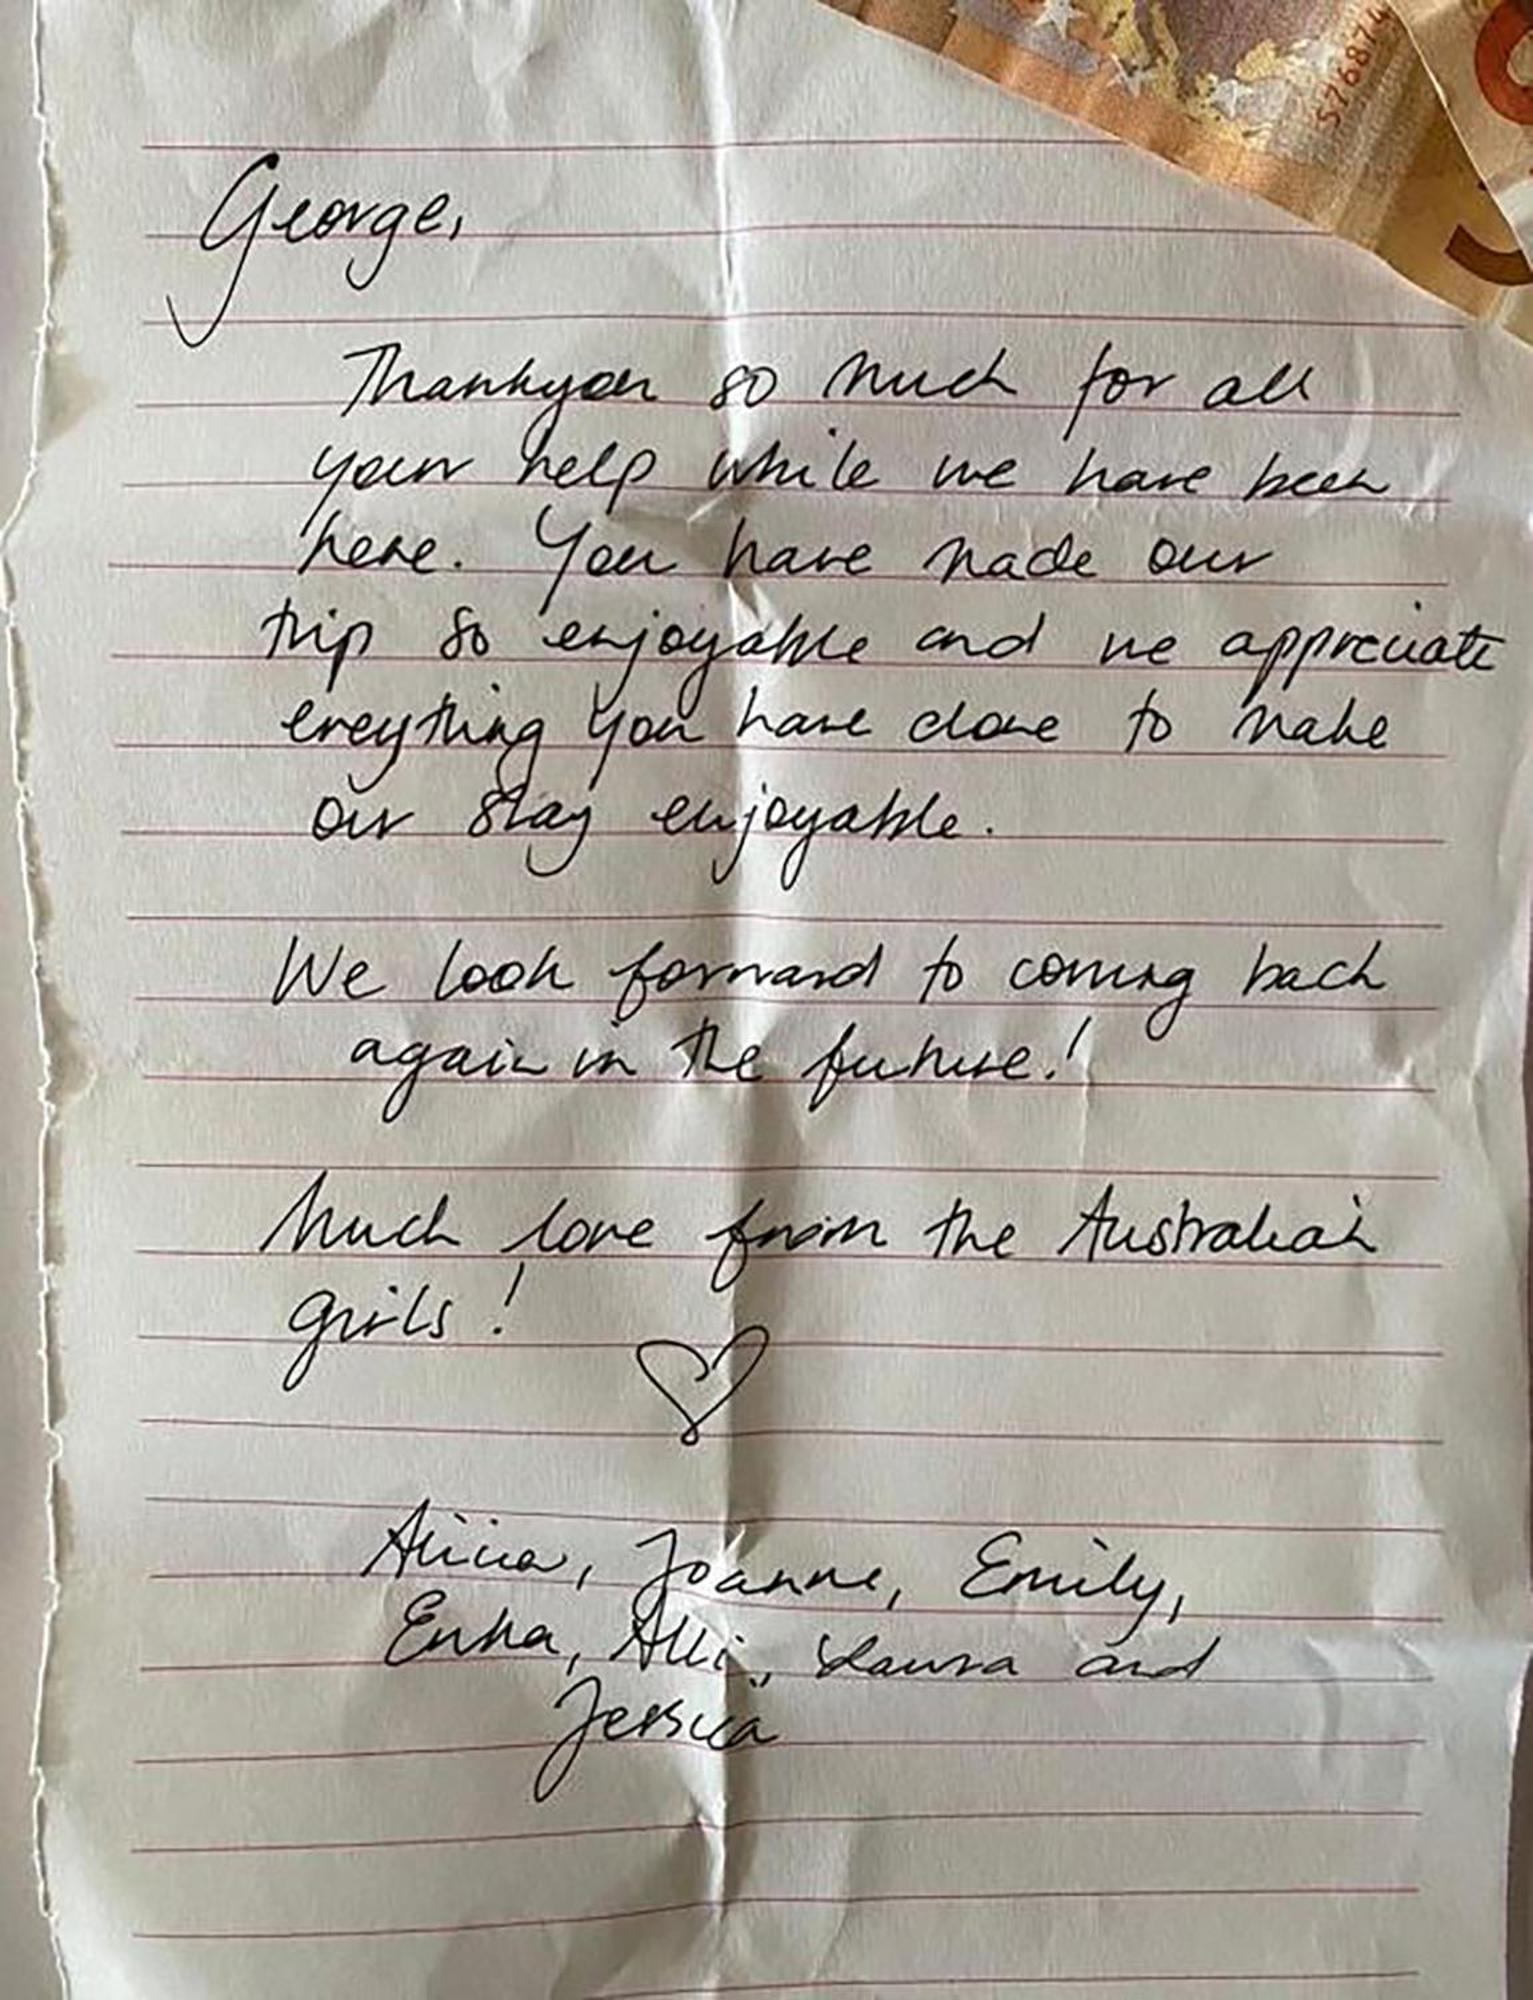 George,
Thankyou so much for all
your help while we have been
here. You have made our
trip so enjoyable and we appreciate
ereything you have done to make
our stay enjoyable.
We look forward to coming back
again in the future!
Much love from the Australian
girls!
Alicia, Joanne, Emily,
Erika, Alli, Laura and
Jessica